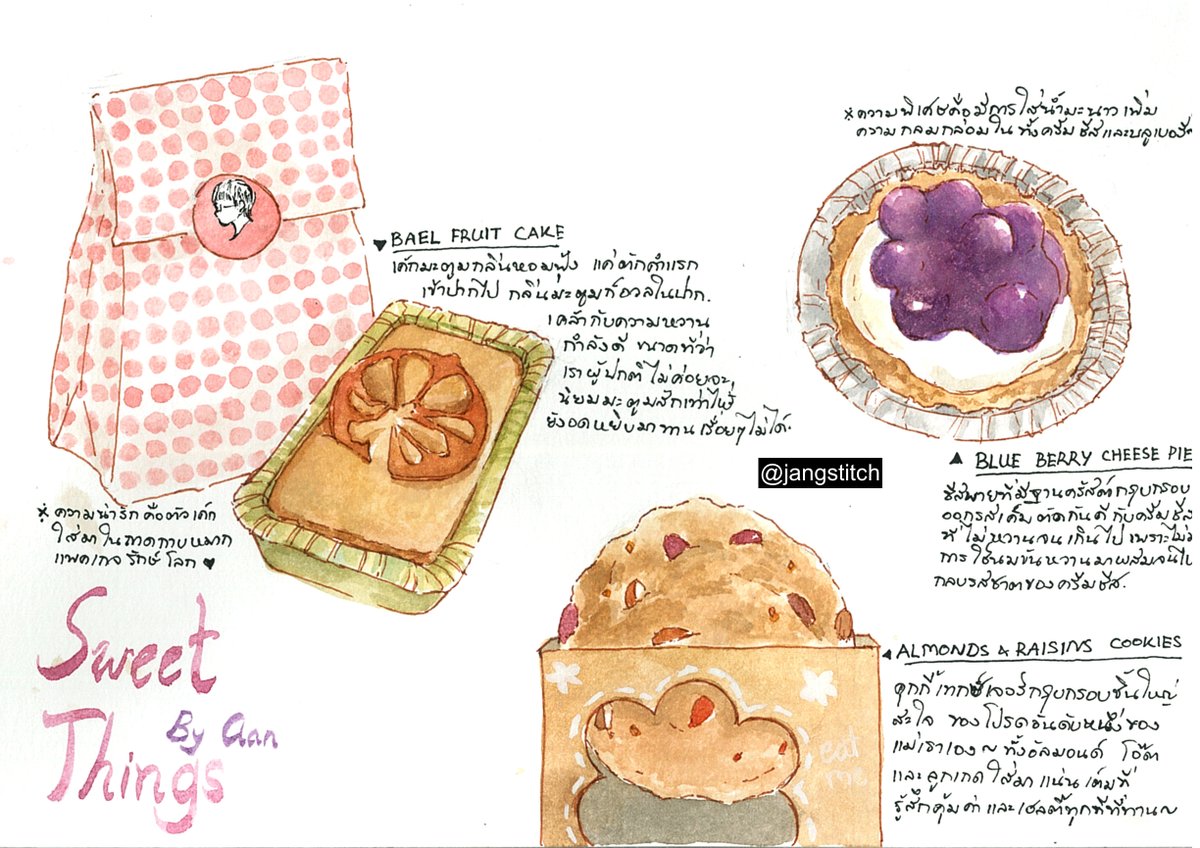 ※ความพิเศษคือมีการใส่น้ำมะนาวเพิ่ม
ความกลมกล่อมในทั้งครีมชีสและบลูเบอรี่
BAEL FRUIT CAKE
เค้กมะตูมกลิ่นหอมฟุ้ง แค่ตักคำแรก
เข้าปากไป กลิ่นมะตูมก็อวลในปาก.
เคล้ากับความหวาน
กำลังดี ขนาดที่ว่า
เราผู้ปกติไม่ค่อยจะ
นิยมมะตูมสักเท่าไหร่
ยังอดหยิบมาทานเรื่อยๆไม่ได้.
@jangstitch
BLUE BERRY CHEESE PIE
ชีสพายที่มีฐานครัสต์กรุบกรอบ
ออกรสเค็มตัดกันดีกับครีมชีส
ที่ไม่หวานจนเกินไป เพราะไม่
การใช้นมข้นหวานมาผสมจนไป
กลบรสชาติของครีมชีส.
※ความน่ารักคือตัวเค้ก
ใส่มาในถาดกาบหมาก
แพคเกจรักษ์โลก ♥
Sweet
Things
By Ann
ALMONDS & RAISINS COOKIES
คุกกี้เทกซ์เจอร์กรุบกรอบชิ้นใหญ่
สะใจ ของโปรดอันดับหนึ่งของ
แม่เราเอง ทั้งอัลมอนด์ โอ๊ต
และลูกเกดใส่มาแน่นเต็มที่
รู้สึกคุ้มค่าและเฮลตี้ทุกทีที่ทาน
eat
me